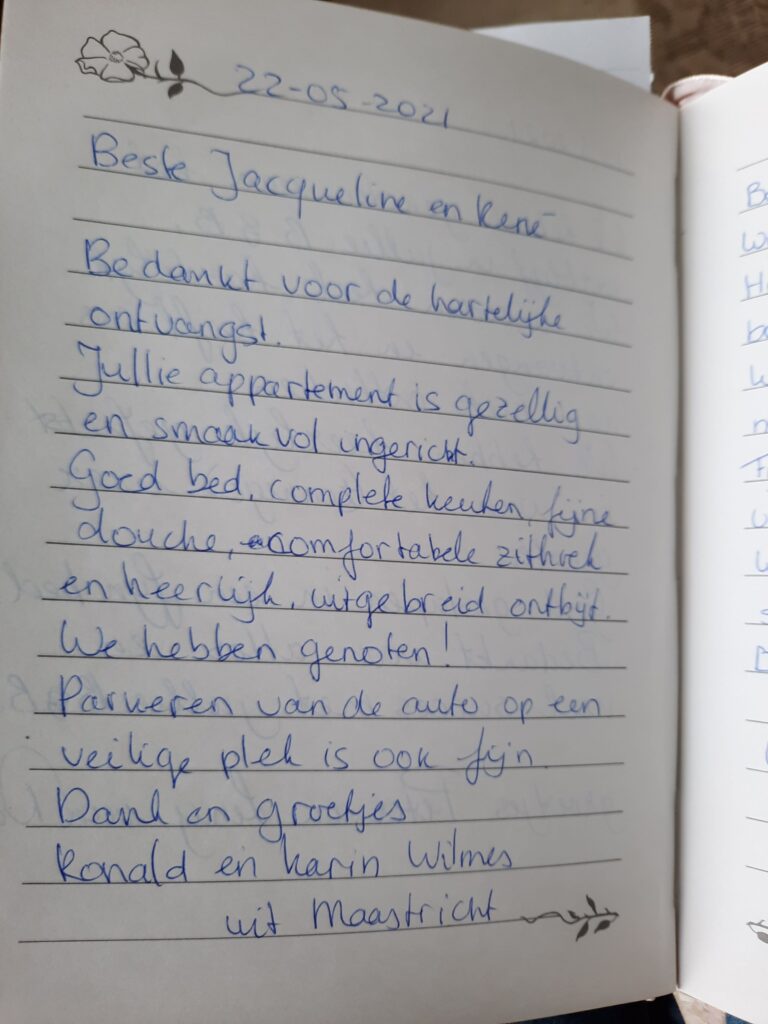 22-05-2021
Beste Jacqueline en René
Bedankt voor de hartelijke
ontvangst.
Jullie appartement is gezellig
en smaakvol ingericht.
Goed bed, complete keuken, fijne
douche, comfortabele zithoek
en heerlijk, uitgebreid ontbijt.
We hebben genoten!
Parkeren van de auto op een
veilige plek is ook fijn.
Dank en groetjes
Ronald en Karin Wilmes
uit Maastricht